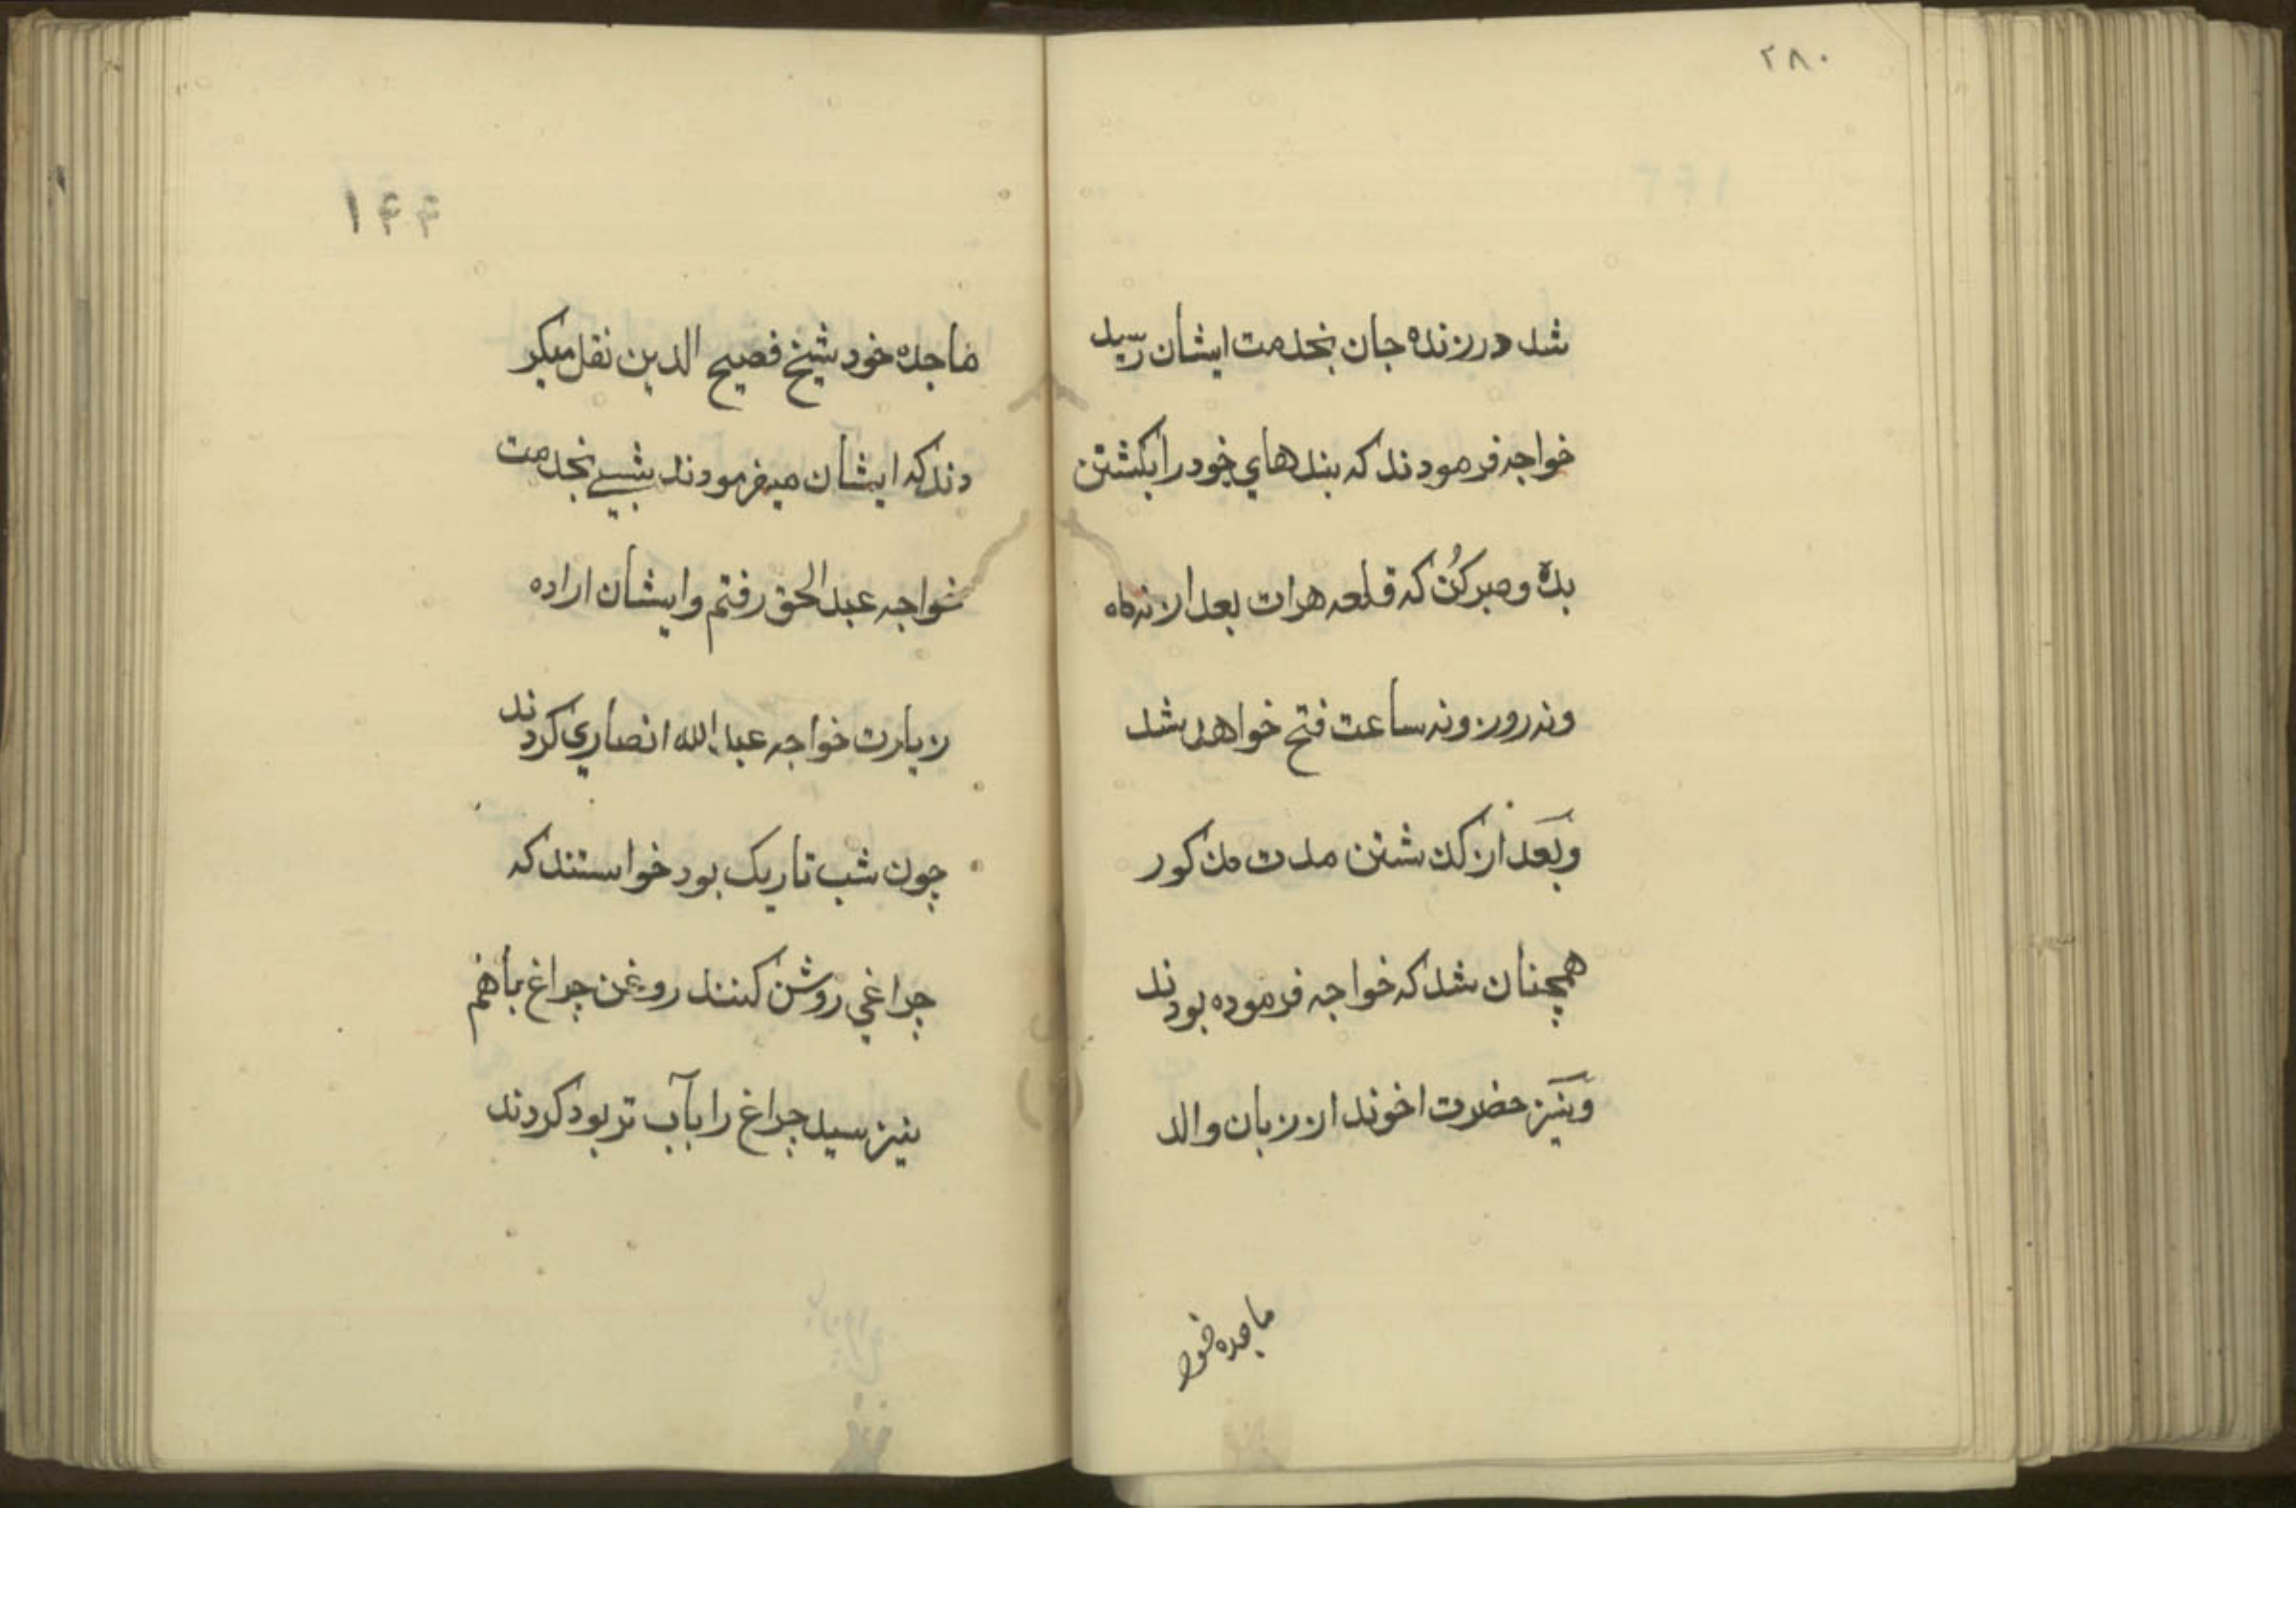 ۲۸۰
شد درزنده جان بخدمت ایشان رسید
خواجه فرمودند که بندهاي خود را بکشتن
بده و صبر کُن که قلعه هرات بعد از نه ماه
ونه روز ونه ساعت فتح خواهد شد
وبَعد از کذشتن مدت مذکور
همچنان شد که خواجه فرموده بودند
وَنیَز حضرت اخوند از زبان والد
ماجده خود
۱۴۴
ماجده خود شیخ فصیح الدین نقل میکر
دند که ایشان میفرمودند شبي بخدمت
خواجه عبد الحق رفتم وایشان اراده
زیارت خواجه عبد الله انصاري کردند
چون شب تاریک بود خواستند که
چراغي روشن کنند روغن چراغ بافهم
نیز سید چراغ را بآب تر بود کردند